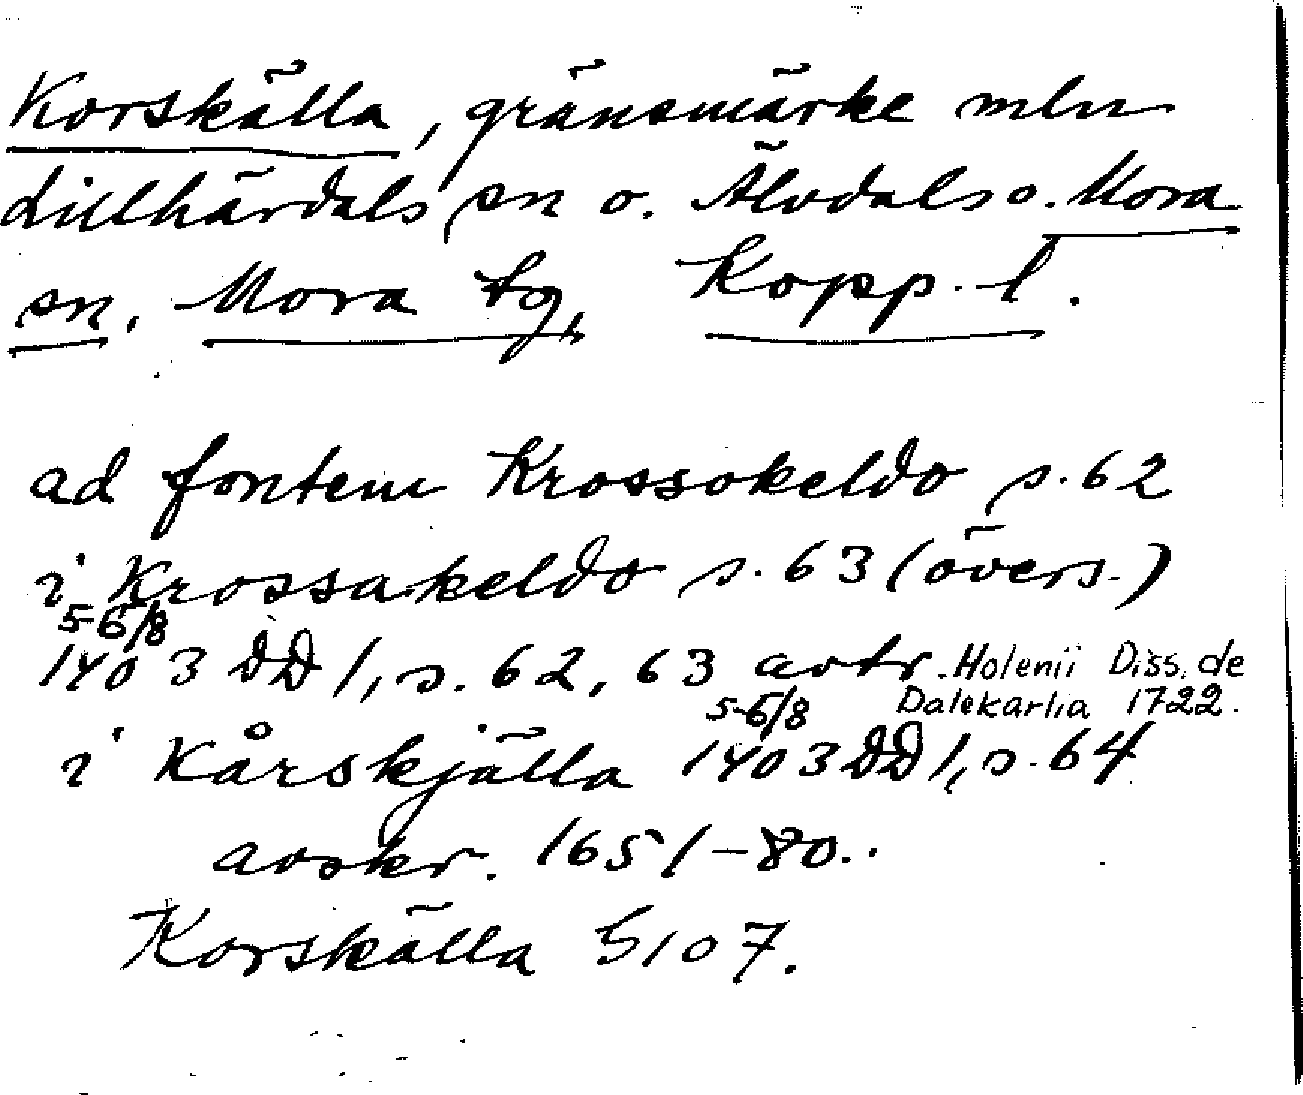 Korskälla, gränsmärke mln
Lillhärdals sn o. Älvdals o. Mora
sn, Mora tg, Kopp. l.
ad fontem Krossokeldo s. 62
i Krossakeldo s. 63 (övers.)
5-6/8
1403 DD 1, s. 62, 63 avtr. Holenii Diss. de
5-6/8 Dalekarlia 1722.
i Kårskjälla 1403 DD 1, s. 64
avskr. 1651-80.
Korskälla S107.